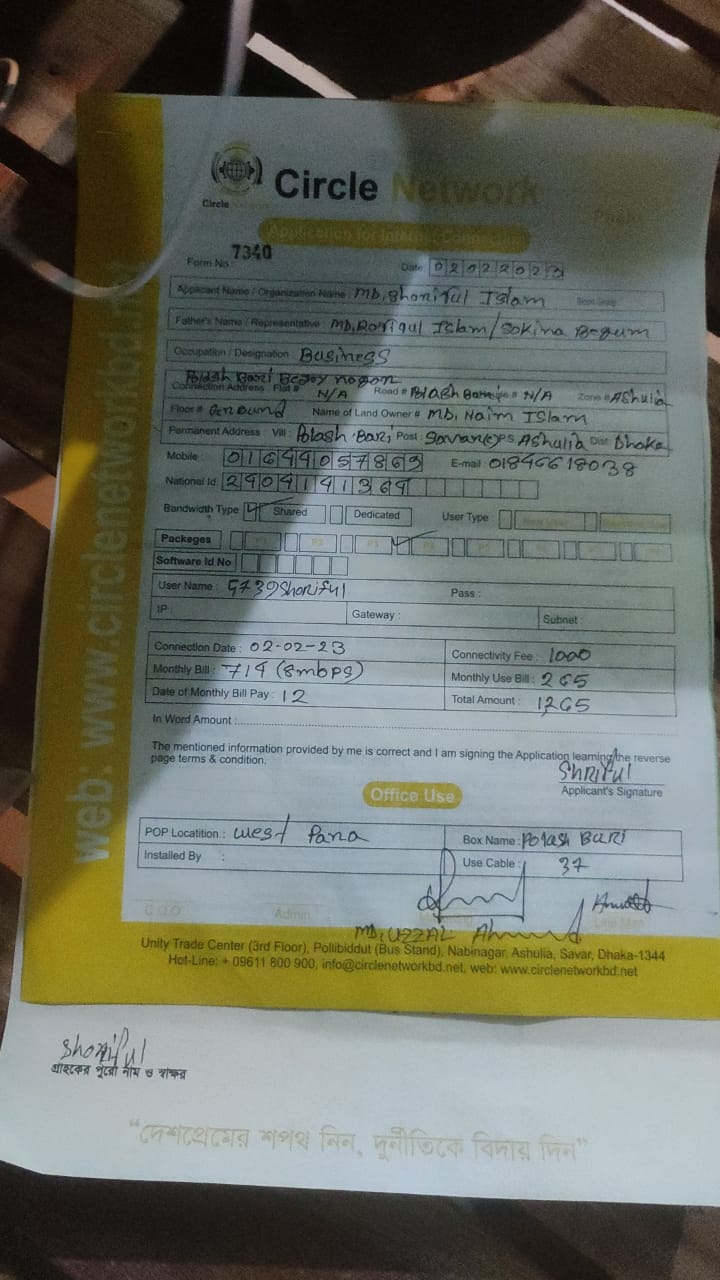 Circle Network
Circle Network
Application for Internet Connection
Form No. 7340
Date 02022023
Applicant Name / Organization Name : Md, Shoriful Islam
Father's Name / Representative : Md, Rofiqul Islam/Sokina Begum
Occupation / Designation : Business
Polash Bari Bejoy nogor
Connection Address Flat # N/A Road # Polash Bari # N/A Zone # AShulia
Floor # Name of Land Owner # MD, Naim Islam
Permanent Address : Vill : Polash Bari Post : Savar(c) PS AShulia Dist Dhaka
Mobile : 01644057863 E-mail : 01846618038
National Id. 2904141369
Bandwidth Type Shared Dedicated User Type :
Packeges P1 P2 P3 P4 P5
Software Id No
User Name : G739Shoriful Pass :
IP : Gateway : Subnet
Connection Date : 02-02-23 Connectivity Fee : 1000
Monthly Bill : 714 (8mbps) Monthly Use Bill : 265
Date of Monthly Bill Pay : 12 Total Amount : 1265
In Word Amount :
The mentioned information provided by me is correct and I am signing the Application learning the reverse
page terms & condition.
Shriful
Applicant's Signature
Office Use
POP Locatition : West Para Box Name : Polash Bari
Installed By : Use Cable : 37
C.O.O Admin Line Man
MD, UZZAL Ahmed
Unity Trade Center (3rd Floor), Pollibiddut (Bus Stand), Nabinagar, Ashulia, Savar, Dhaka-1344
Hot-Line: + 09611 800 900, info@circlenetworkbd.net, web: www.circlenetworkbd.net
web: www.circlenetworkbd.net
Shoriful
গ্রাহকের পুরো নাম ও স্বাক্ষর
“দেশপ্রেমের শপথ নিন, দুর্নীতিকে বিদায় দিন”